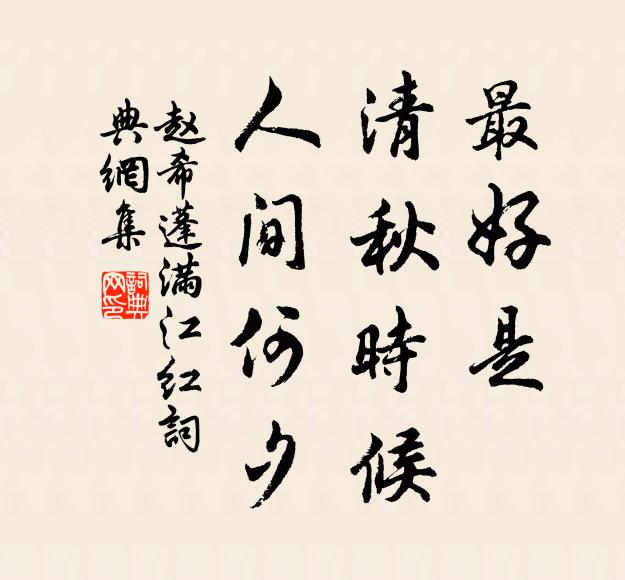 最好是
清秋時候
人间何夕
赵希蓬满江红詞
典網集
詞典
网印